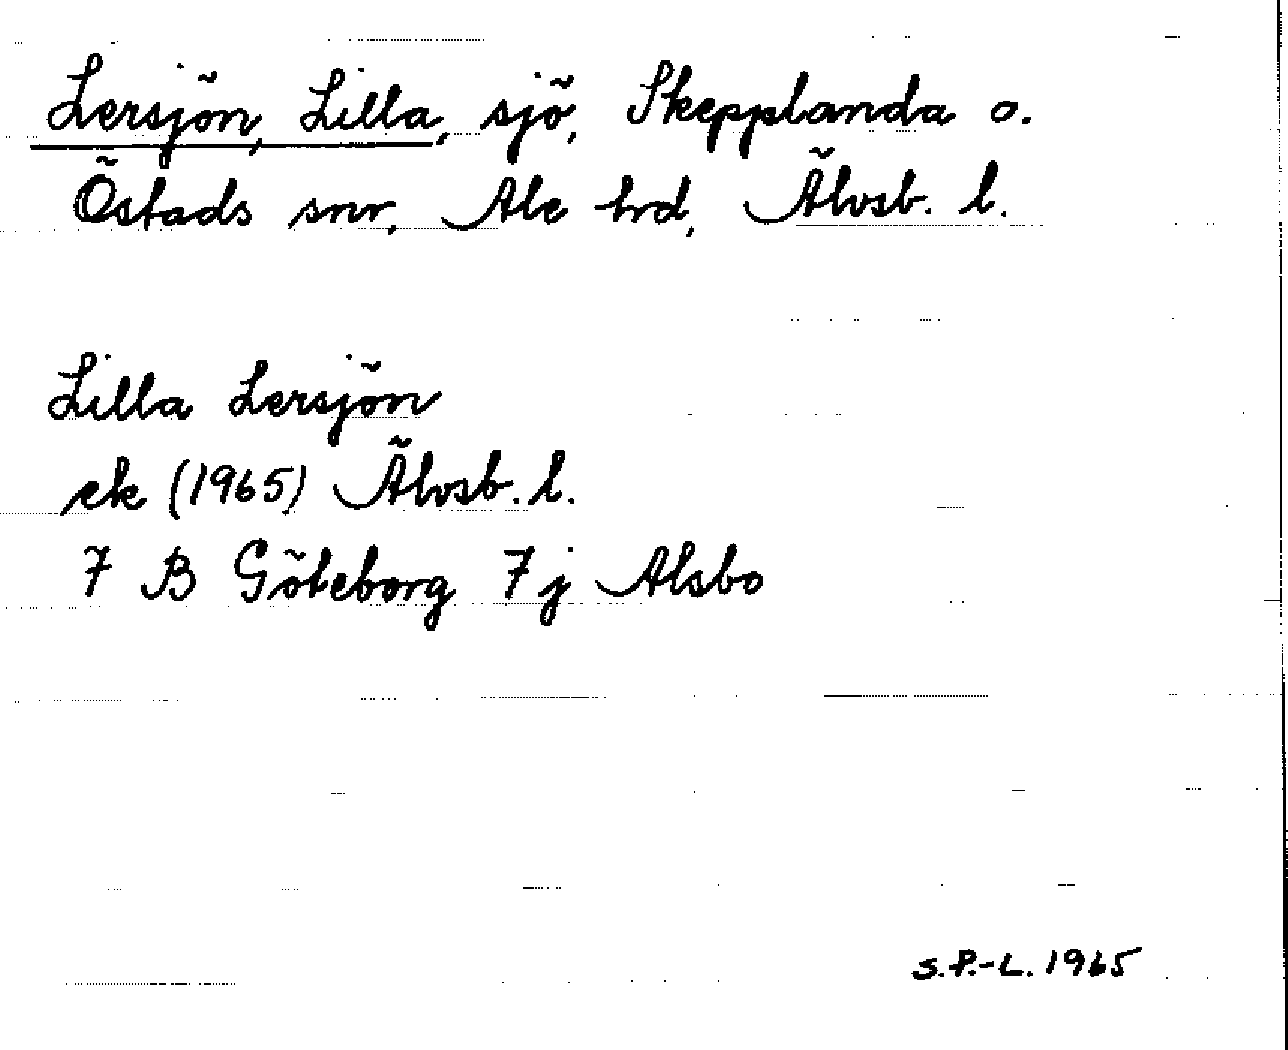 Lersjön, Lilla, sjö, Skepplanda o.
Östads snr, Ale hrd, Älvsb. l.
Lilla Lersjön
ek (1965) Älvsb. l.
7 B Göteborg 7j Alsbo
S.P.-L. 1965